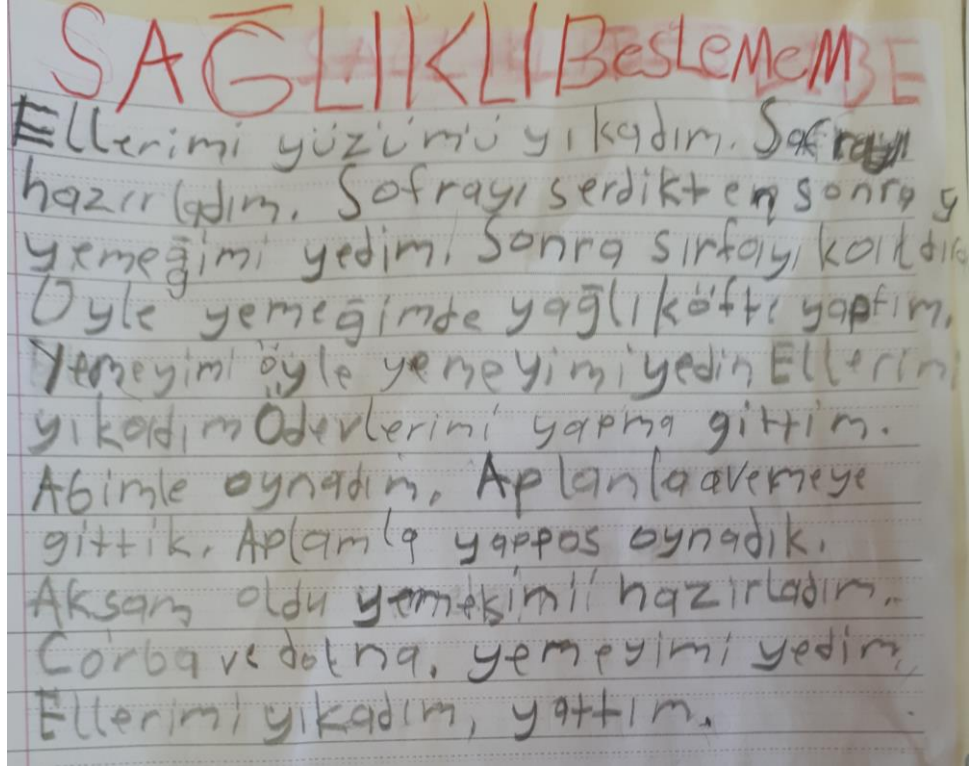 SAĞLIKLI BesLeMeM
Ellerimi yüzümü yıkadım. Sofrayı
hazırladım. Sofrayı serdikten sonra y
yemeğimi yedim. Sonra sırfayı kaldı
Öyle yemeğimde yağlı köfte yaptım.
Yemeyimi öyle yemeyimi yedin Ellerimi
yıkadım Ödevlerimi yapma gittim.
Abimle oynadım. Aplanla avemeye
gittik. Aplamla yappos oynadık.
Aksam oldu yemekimi hazirladım.
Corba ve dolma. yemeyimi yedim
Ellerimi yıkadım, yattım.